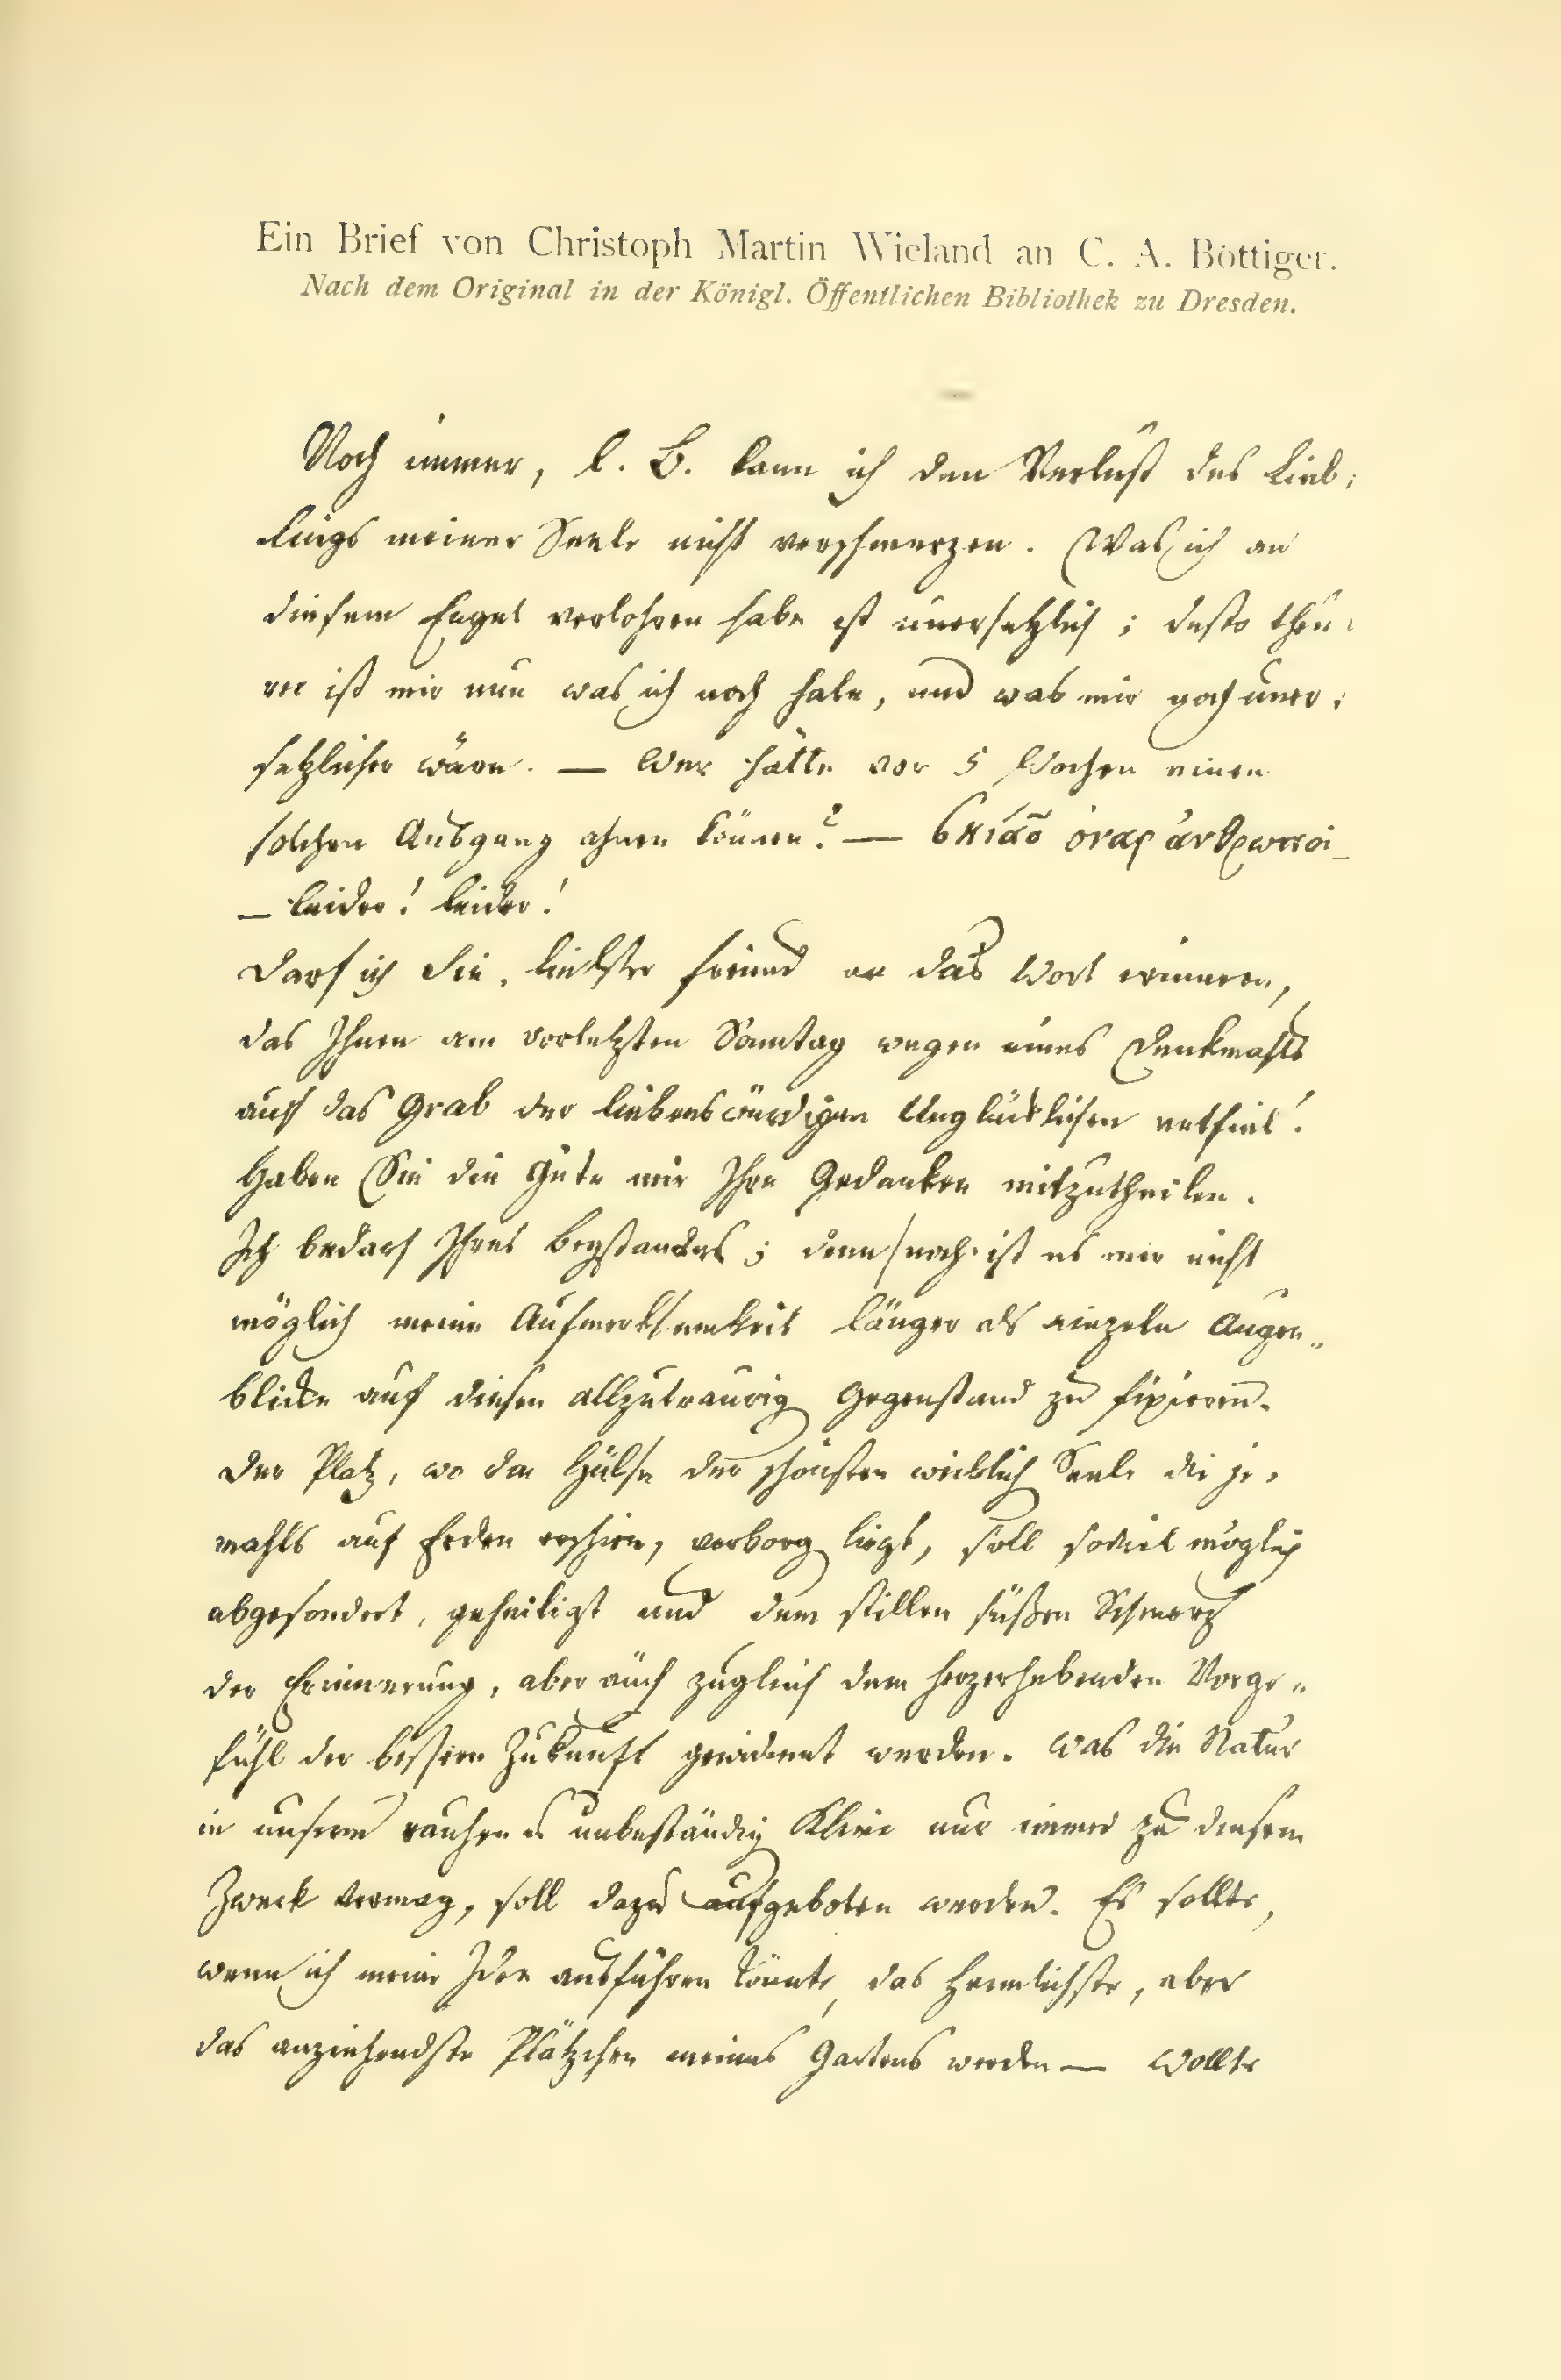 Ein Brief von Christoph Martin Wieland an C. A. Böttiger.
Nach dem Original in der Königl. Öffentlichen Bibliothek zu Dresden.
Noch immer, l. B. kann ich den Verlust des Lieb-
lings meiner Seele nicht verschmerzen. Was ich an
diesem Engel verlohren habe ist unersetzlich; desto theu-
rer ist mir nun was ich noch habe, und was mir noch uner-
setzlicher wäre. — Wer hätte vor 5 Wochen einen
solchen Ausgang ahnen können? — σκιᾶς ὄναρ ἄνθρωποι
— leider! leider!
Darf ich Sie, liebster Freund an das Wort erinnern,
das Ihnen am vorletzten Sonntag wegen eines Denkmahls
auf das Grab der liebenswürdigen Unglücklichen entfiel?
Haben Sie die Güte mir Ihre Gedanken mitzutheilen.
Ich bedarf Ihres Beystandes; denn noch ist es mir nicht
möglich meine Aufmerksamkeit länger als einzeln Augen-
blicke auf diesen allzutraurig Gegenstand zu fixieren.
Der Platz, wo die Hülse der schönsten weiblich Seele die je-
mahls auf Erden erschien, verborg liegt, soll soviel möglich
abgesondert, geheiligt und dem stillen süßen Schmerz
der Erinnerung, aber auch zugleich dem herzerhebenden Vorge-
fühl der bessern Zukunft gewidmet werden. Was die Natur
in unserm rauhen u unbeständig Klima nur immer zu diesem
Zweck vermag, soll dazu aufgeboten werden. Es sollte,
wenn ich meine Idee ausführen könnte, das heimlichste, aber
das anziehendste Plätzchen meines Gartens werden — Wollte